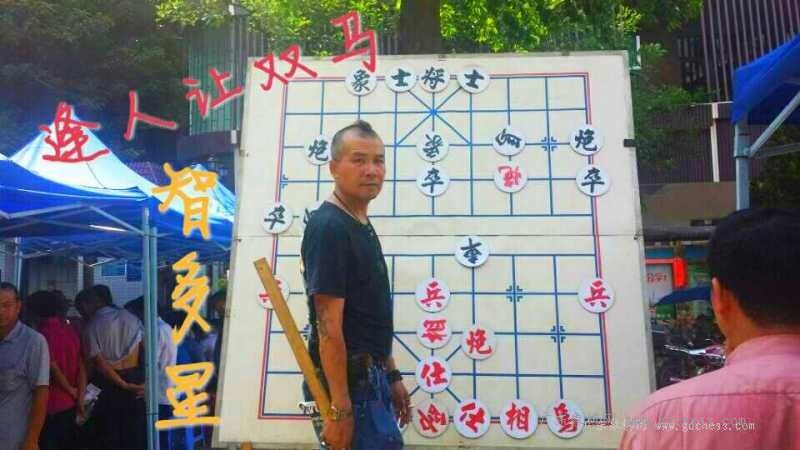 逢人让双马
智多星
象 士 将 士
炮 象 炮
卒 炮 卒
卒
車
兵 兵
炮
仕
仕 相
www.gdchess.com